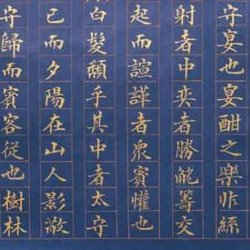 守宴也宴酣之樂非絲
射者中奕者勝觥籌交
起而諠譁者眾賓懽也
白髮頹乎其中者太守
已而夕陽在山人影散
守歸而賓客從也樹林